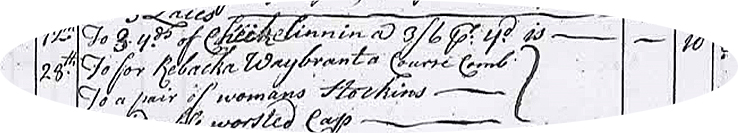 To 3 yds of Checke linnin a 3/6 Pr yd is — — 10
28th To for Rebacka Waybrant a Course Comb
To a pair of womans Stockins —
worsted Cap —